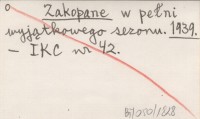 Zakopane w pełni
wyjątkowego sezonu. 1939.
– IKC nr 42.